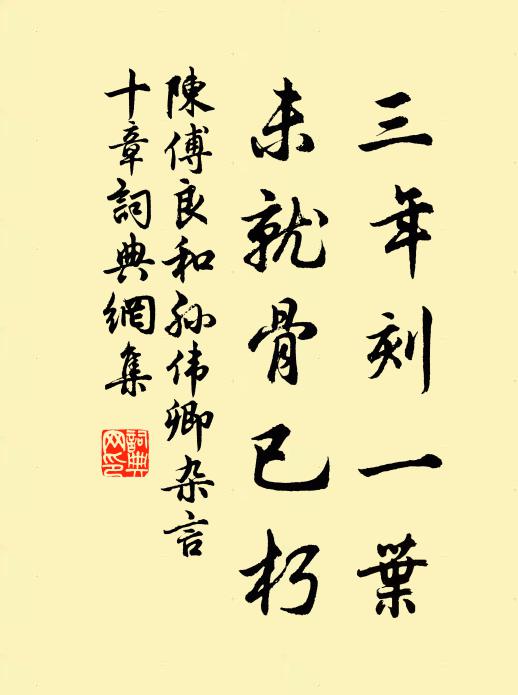 三年刻一葉
未就骨已朽
陳傅良和孙伟卿杂言
十章詞典網集
詞典網印